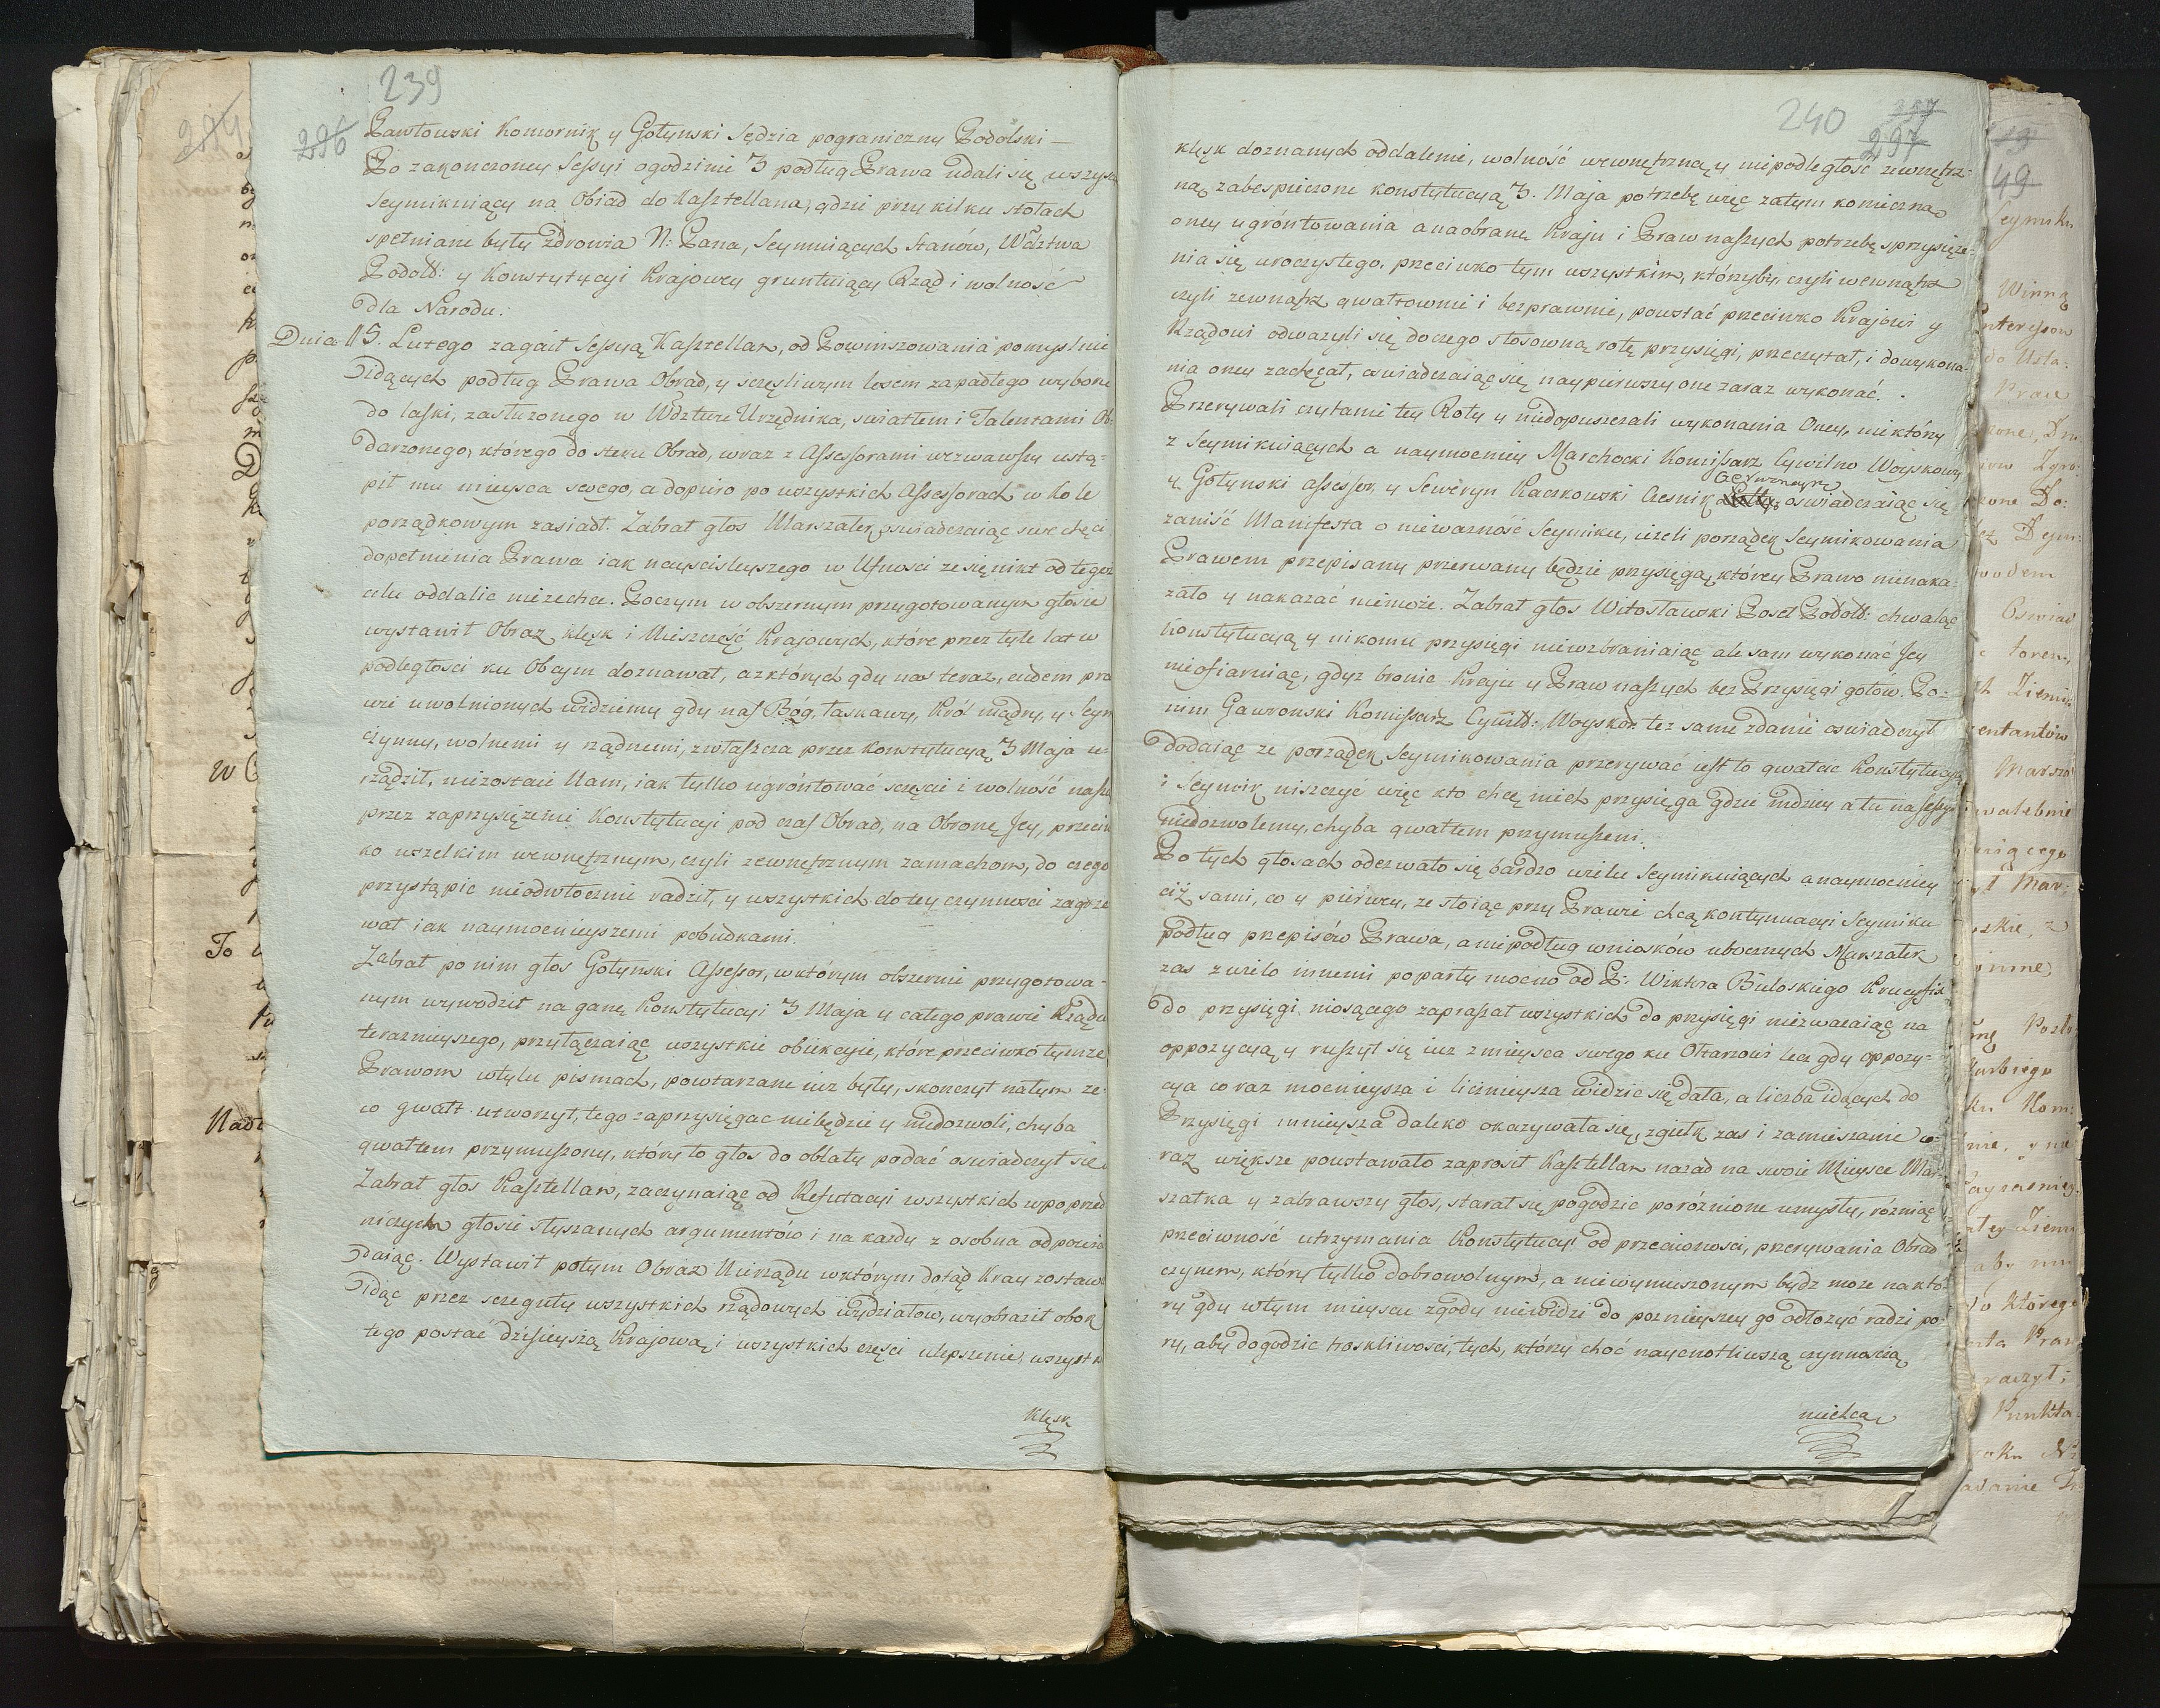 239
296
Pawłowski Komornik y Gołynski Sędzia pograniczny Podolski —
Po zakonczoney Sessyi ogodzinie 3 podług Prawa udali się wszyscy
Seymikuiący na Obiad do Kasztellana, gdzie przy kilku stołach
spełniane były Zdrowia N: Pana, Seymuiących Stanów, Wdztwa
Podolß: y Konstytycyi Krajowey gruntuiący Rząd i wolność
dla Narodu.
Dnia 15. Lutego zagaił Sessyą Kasztellan, od Powinszowania pomyslnie
Idących podług Prawa Obrad, y sczęsliwym losem zapadłego wyboru
do laski, zasłużonego w Wdztwie Urzędnika, swiatłem i Talentami Ob:
darzonego, którego do steru Obrad, wraz z Assessorami wezwawszy ustą-
pił mu mieysca swego, a dopiero po wszystkich Assessorach w Kole
porządkowym zasiadł. Zabrał głos Marszałek, oswiadczaiąc swe chęci
dopełnienia Prawa iak nayscisleyszego w Ufnosci że się nikt od tegoż
celu oddalic niezechce. Poczym w obszernym przygotowanym głosie
wystawił Obraz klęsk i Nieszczęść Krajowych, które przez tyle lat w
podległosci ku Obcym doznawał, a z których gdy nas teraz, cudem pra
wie uwolnionych widziemy gdy nas Bóg, łaskawy, Król mądry, y Seym
czynny, wolnemi y rządnemi, zwłaszcza przez Konstytucyą 3 Maja u-
rządził, niezostaie Nam, iak tylko ugróntować sczęscie i wolność nasze
przez zaprzysiężenie Konstytucyi pod czas Obrad, na Obronę Jey, przeciw
ko wszelkim wewnętrznym, czyli zewnętrznym zamachom, do czego
przystąpic nieodwłocznie radził, y wszystkich do tey czynnosci zagrze
wał iak naymocnieyszemi pobudkami.
Zabrał po nim głos Gołynski Assessor, w którym obszernie przygotowa-
nym wywodził na ganę Konstytucyi 3 Maja y całego prawie Rządu
teraznieyszego, przyłączaiąc wszystkie obiekcyie, które przeciwko tymże
Prawom w tylu pismach, powtarzane iuż były, skonczył na tym że
co gwałt utworzył, tego zaprzysięgac niebędzie y niedozwoli, chyba
gwałtem przymuszony, który to głos do oblaty podać oswiadczył się.
Zabrał głos Kasztellan, zaczynaiąc od Refutacyi wszystkich w poprzed
niczych głosie słyszanych argumentów i na każdy z osobna odpowia
daiąc. Wystawił potym Obraz Nierządu w którym dotąd Kray zostaw
Idąc przez sczeguły wszystkich rządowych wydziałów, wyobraził obok
tego postać dzisieyszą Krajową, i wszystkich części ulepszenie, wszystk
Klęsk
240
297
klęsk doznanych oddalenie, wolność wewnętrzną y niepodległość zewnętrz-
ną zabespieczone konstytucyą 3. Maja potrzebę więc zatym konieczną
oney ugróntowania a na obranę Kraju i Praw naszych potrzebę sprzysięże-
nia się uroczystego, przeciwko tym wszystkim, którzyby, czyli wewnątrz
czyli zewnątrz gwałtownie i bezprawnie, powstać przeciwko Krajowi y
Rządowi odważyli się do czego stosowną rotę przysięgi, przeczytał, i do wykona-
nia oney zachęcał, oswiadczaiąc się naypierwszy one zaraz wykonać.
Przerywali czytanie tey Roty y niedopuszczali wykonania Oney, niektórzy
z Seymikuiących a naymocniey Marchocki Komissarz Cywilno Woyskowy
y Gołynski assessor, y Seweryn Raczkowski Czesnik Czerwonogr. oswiadczaiąc się
zanisć Manifesta o nieważność Seymiku, ieżeli porządek Seymikowania
Prawem przepisany przerwany będzie przysięgą, którey Prawo nienaka:
zało y nakazać niemoże. Zabrał głos Witosławski Poseł Podolß: chwaląc
Konstytucyą y nikomu przysięgi niewzbraniaiąc ale sam wykonać Jey
nieofiaruiąc, gdyż bronic Kraju y Praw naszych bez Przysięgi gotów. Po-
nim Gawronski Komissarz Cywilß: Woysko: też same zdanie oswiadczył
dodaiąc że porządek Seymikowania przerywać iest to gwałcic Konstytucyą
i Seymik niszczyć więc kto chce niech przysięga gdzie indziey a tu na sessyi
niedozwolemy, chyba gwałtem przymuszeni.
Po tych głosach odezwało się bardzo wielu Seymikuiących a naymocniey
ciż sami, co y pierwey, że stoiąc przy Prawie chcą kontynuacyi Seymiku
podług przepisów Prawa, a nie podług wniosków ubocznych Marszałek
zas z wielo innemi poparty mocno od P: Wiktora Bieloskiego Krucyfix
do przysięgi niosącego zapraszał wszystkich do przysięgi niezwaźaiąc na
oppozycyą y ruszył się iuż z mieysca swego ku Ołtarzowi lecz gdy oppozy-
cya co raz mocnieysza i licznieysza widzic się dała, a liczba idących do
Przysięgi mnieysza daleko okazywała się, zgiełk zas i zamieszanie co-
raz większe powstawało zaprosił Kasztellan nazad na swoie Mieysce Mar-
szałka y zabrawszy głos, starał się pogodzic poróźnione umysły, rózniąc
przeciwność utrzymania Konstytucyi od przeciwnosci, przerywania Obrad
czynem, który tylko dobrowolnym, a niewymuszonym bydz może na któ-
ry gdy w tym mieyscu zgody niewidzi do poznieyszey go odłożyć radzi po-
ry, aby dogodzic troskliwości, tych, którzy choć naycnotliwszą czynnoscią
niechcą
49